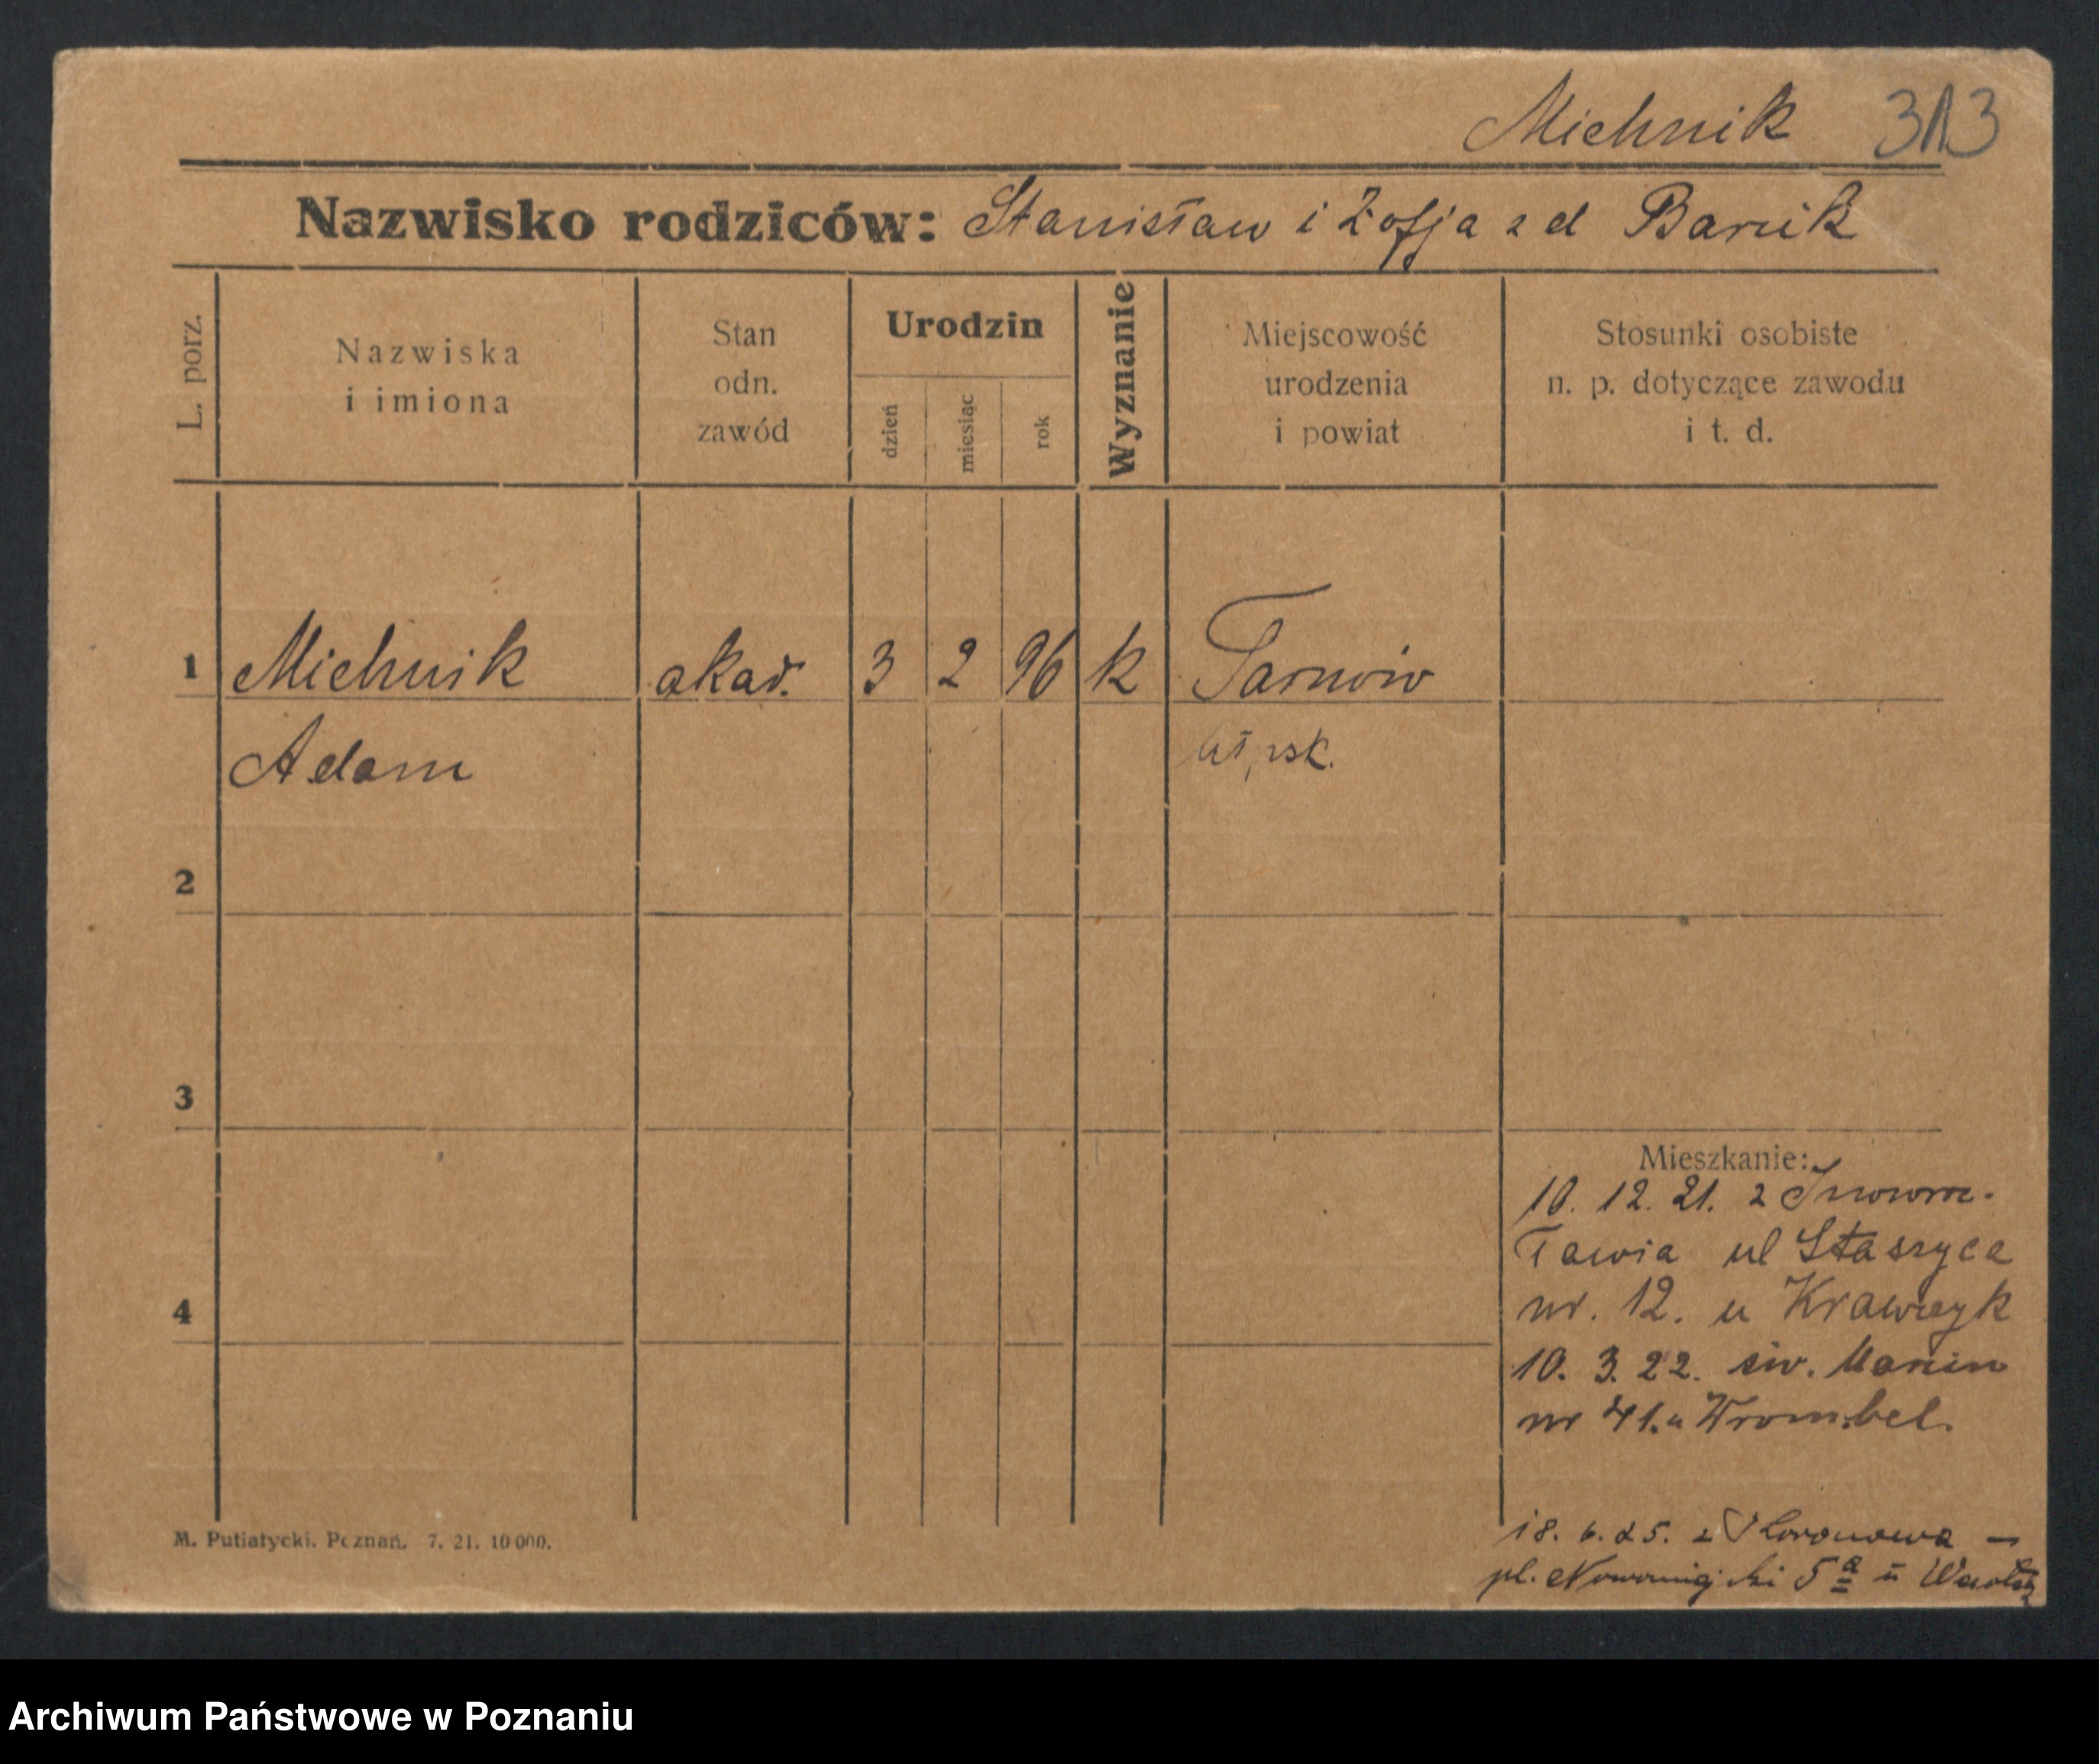 Michnik 313
Nazwisko rodziców: Stanisław i Zofja z d Banik
L. porz.
Nazwiska
i imiona
Stan
odn.
zawód
Urodzin
dzień
miesiąc
rok
Wyznanie
Miejscowość
urodzenia
i powiat
Stosunki osobiste
n. p. dotyczące zawodu
i t. d.
1 Michnik akad. 3 2 96 k Tarnów
Adam
2
3
4
Mieszkanie:
10. 12. 21. z Inowroc-
ławia ul Staszyca
nr. 12. u Krawczyk
10. 3. 22. św. Marcin
nr 41. u Wrombel.
18. 6. 25. z Koronowa —
pl. Nowomiejski 5 a u
M. Putiatycki. Poznań. 7. 21. 10 000.
Archiwum Państwowe w Poznaniu